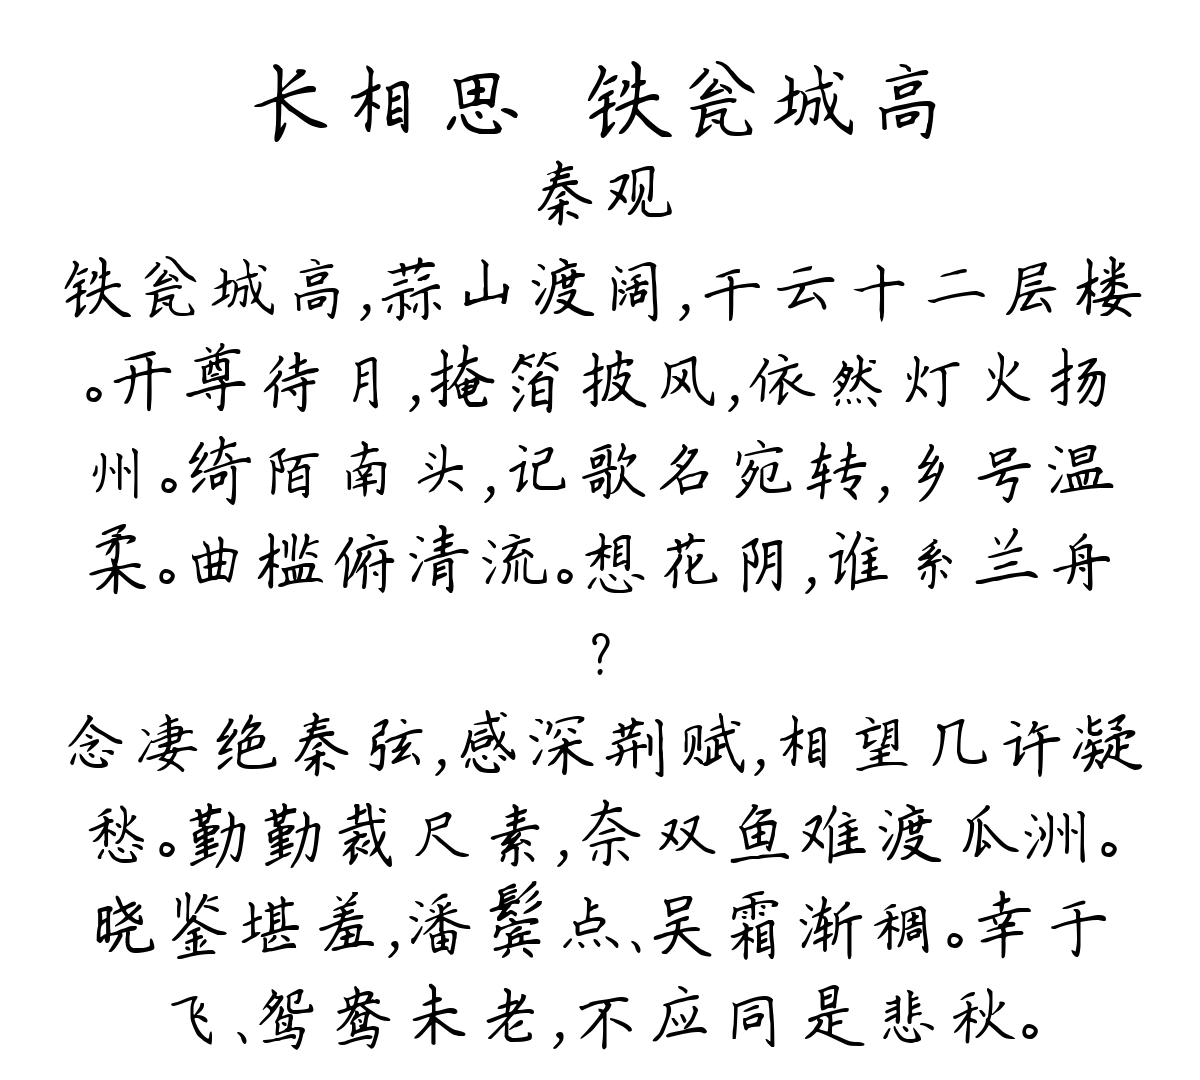 长相思 铁瓮城高
秦观
铁瓮城高,蒜山渡阔,干云十二层楼
。开尊待月,掩箔披风,依然灯火扬
州。绮陌南头,记歌名宛转,乡号温
柔。曲槛俯清流。想花阴,谁系兰舟
?
念凄绝秦弦,感深荆赋,相望几许凝
愁。勤勤裁尺素,奈双鱼难渡瓜洲。
晓鉴堪羞,潘鬓点、吴霜渐稠。幸于
飞、鸳鸯未老,不应同是悲秋。